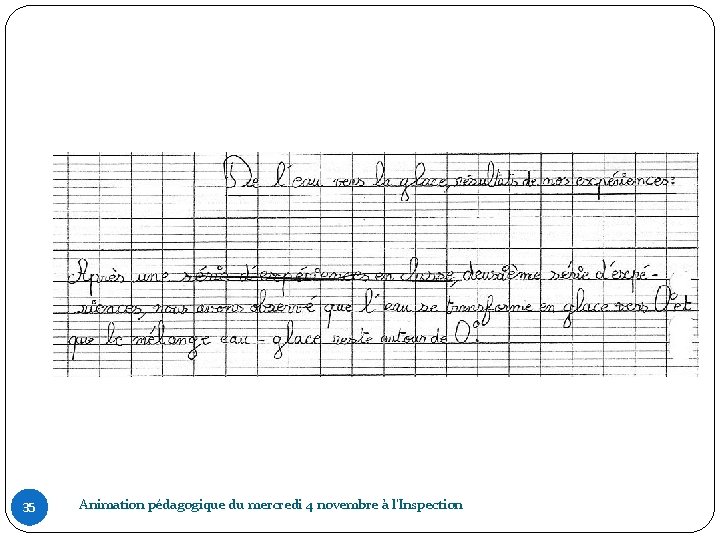 De l'eau vers la glace, résultats de nos expériences:
Après une série d'expériences en classe, deuxième série d'expé-
riences, nous avons observé que l'eau se transforme en glace vers 0° et
que le mélange eau - glace reste autour de 0°.
35
Animation pédagogique du mercredi 4 novembre à l'Inspection